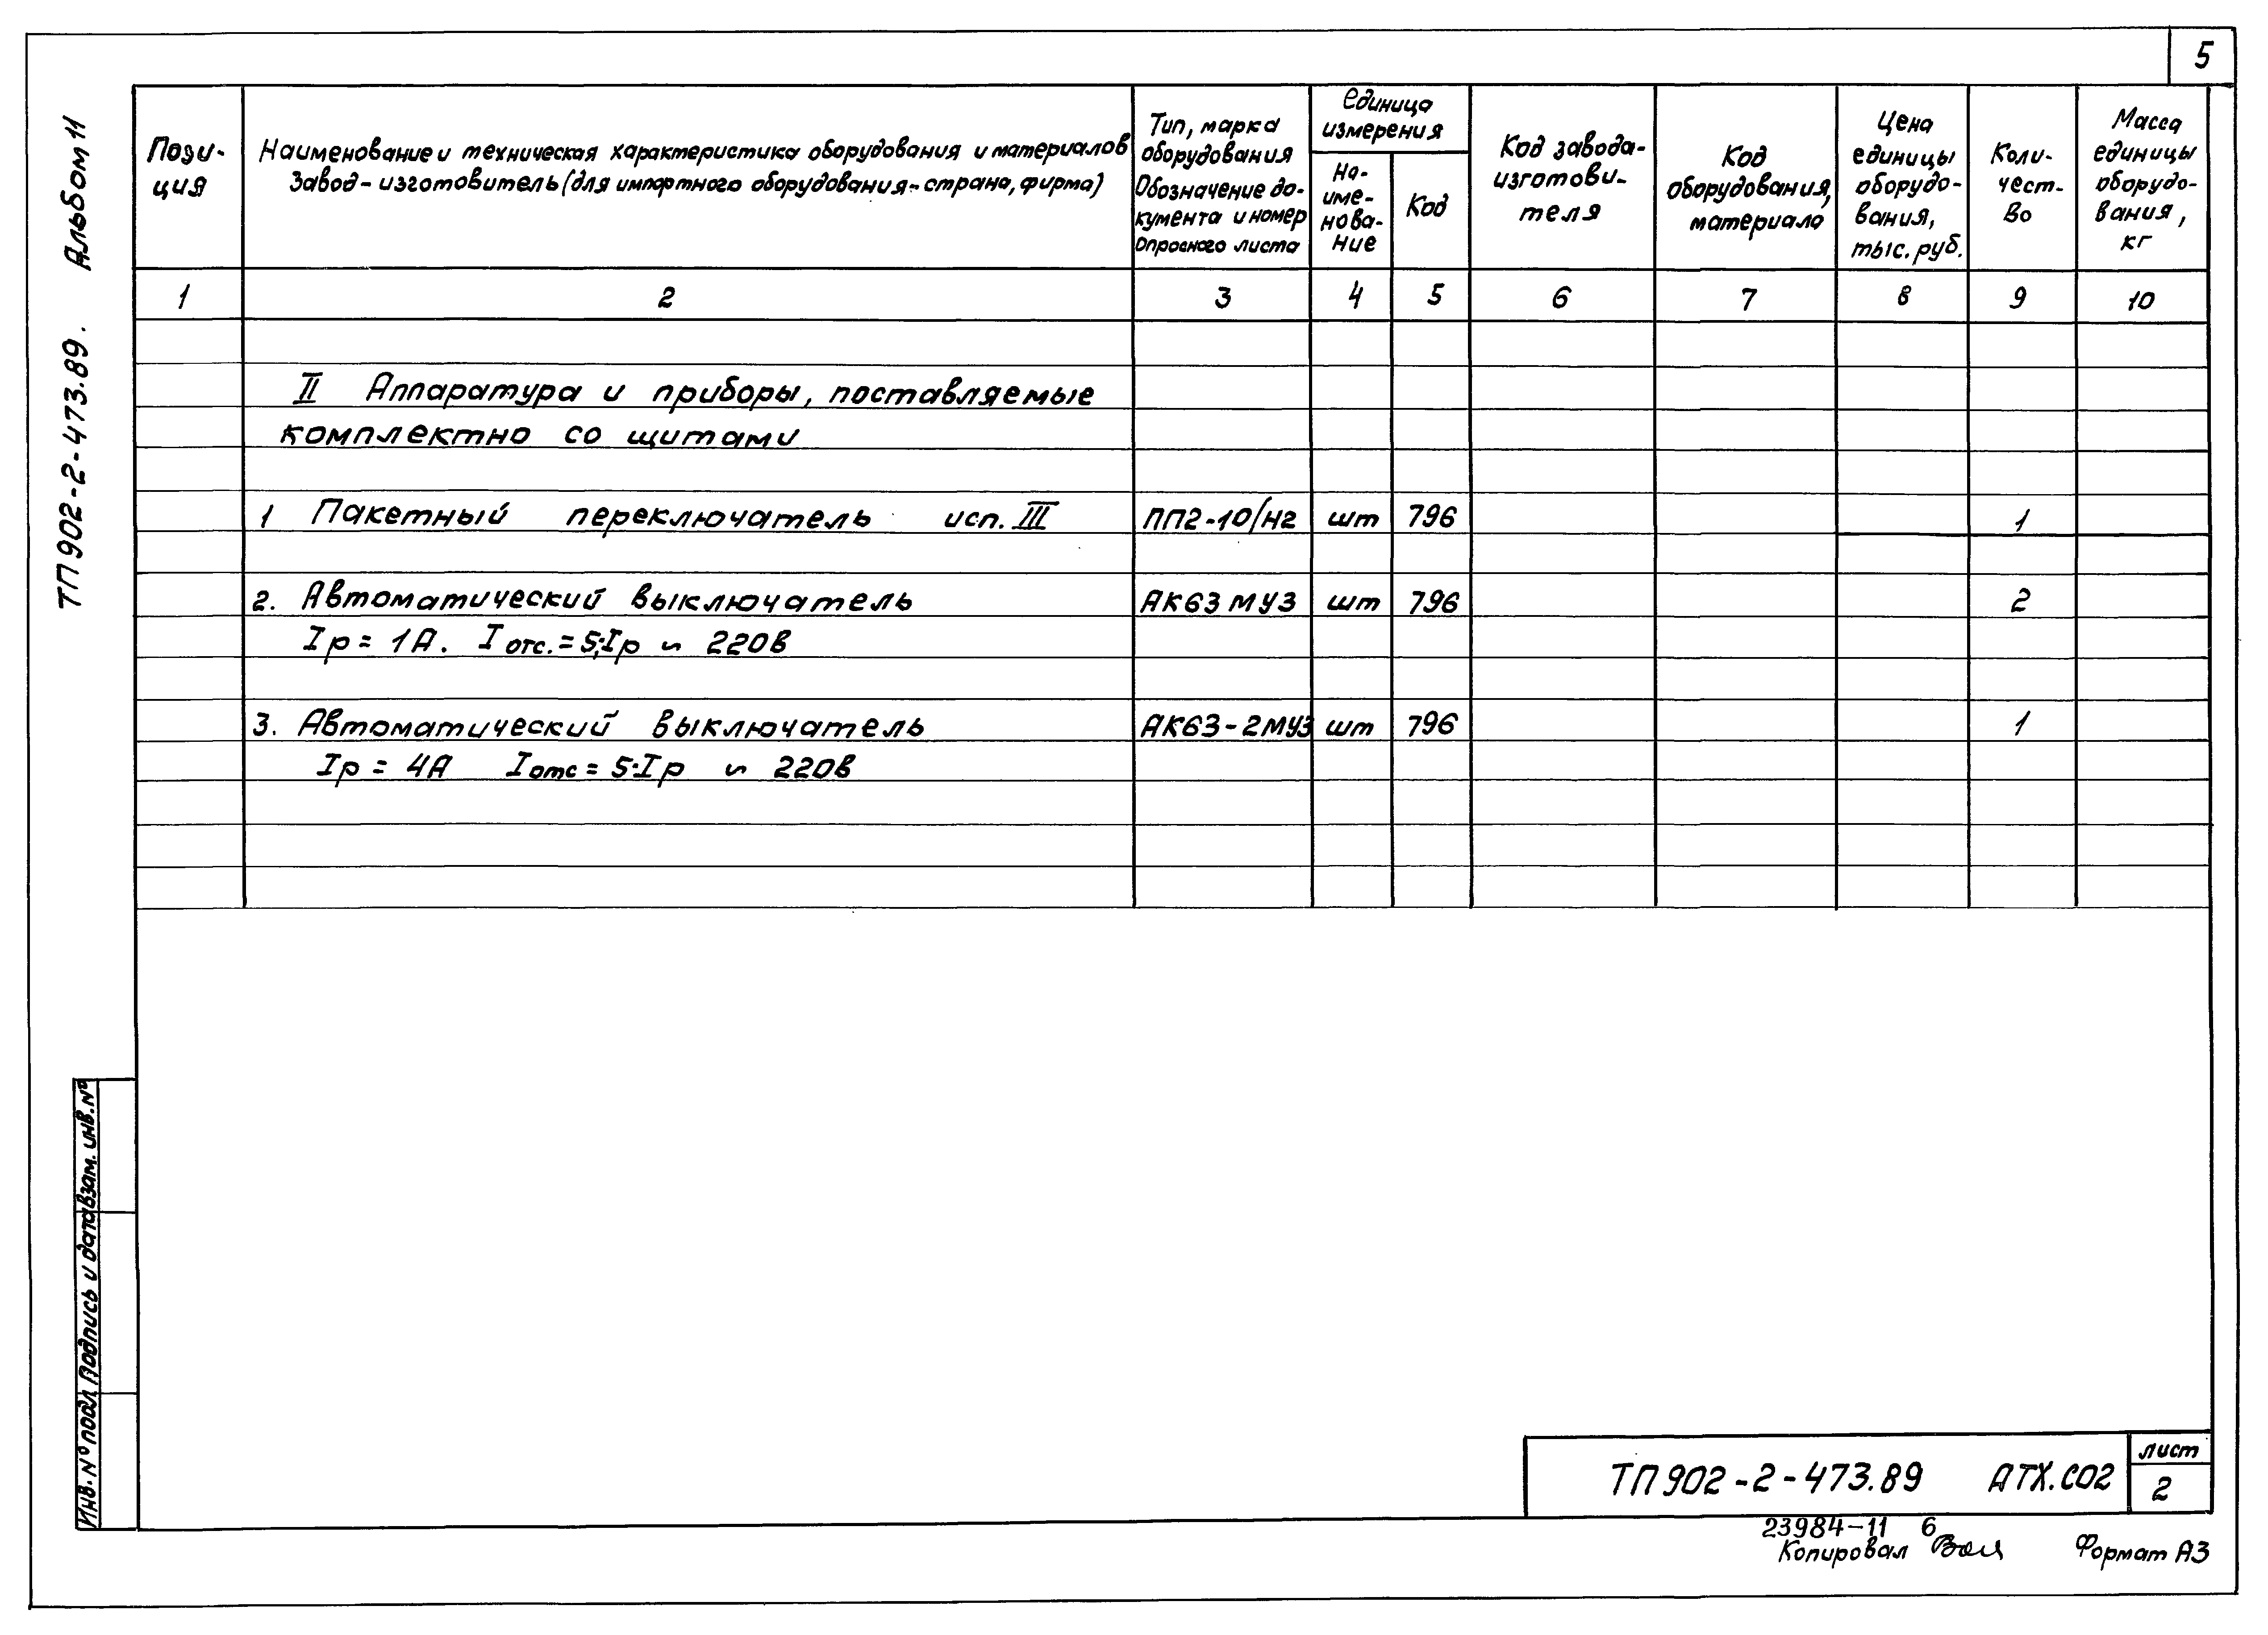 5
ТП 902-2-473.89. Альбом 11
Пози-
ция
Наименование и техническая характеристика оборудования и материалов
Завод-изготовитель (для импортного оборудования - страна, фирма)
Тип, марка
оборудования
Обозначение до-
кумента и номер
опросного листа
Единица
измерения
На-
име-
нова-
ние
Код
Код завода-
изготови-
теля
Код
оборудования,
материала
Цена
единицы
оборудо-
вания,
тыс. руб.
Коли-
чест-
во
Масса
единицы
оборудо-
вания,
кг
1 2 3 4 5 6 7 8 9 10
II Аппаратура и приборы, поставляемые
комплектно со щитами
1 Пакетный переключатель исп. III ПП2-10/Н2 шт 796 1
2. Автоматический выключатель АК63 МУ3 шт 796 2
Iр = 1А. Iотс. = 5·Iр ~ 220В
3. Автоматический выключатель АК63-2МУ3 шт 796 1
Iр = 4А Iотс = 5·Iр ~ 220В
Инв. № подл. Подпись и дата Взам. инв. №
ТП 902-2-473.89 АТХ.СО2
лист
2
23984-11 6
Копировал
Формат А3